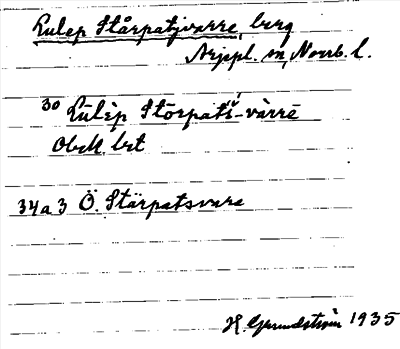 Lulep Stårpatjvarre, berg
Arjepl. sn, Norrb. l.
30 Lulēp Stōrpats-vārrē
Obek. bet
34a3 Ö. Stärpatsvare
H. Grundström 1935